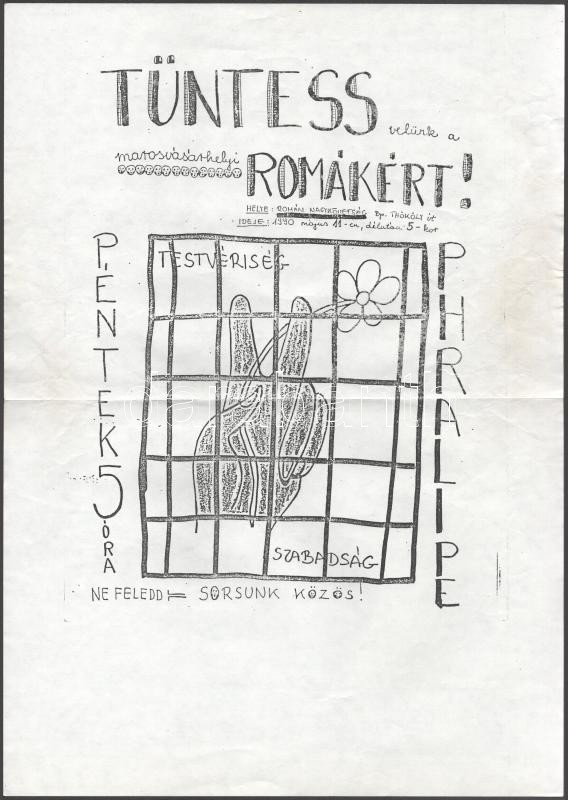 TÜNTESS
velünk a
marosvásárhelyi
ROMÁKÉRT!
HELYE: ROMÁN NAGYKÖVETSÉG Bp. THÖKÖLY út
IDEJE: 1990 május 11-én, délután 5-kor
PÉNTEK 5 ÓRA
TESTVÉRISÉG
PHRALIPE
SZABADSÁG
NE FELEDD – SORSUNK KÖZÖS!